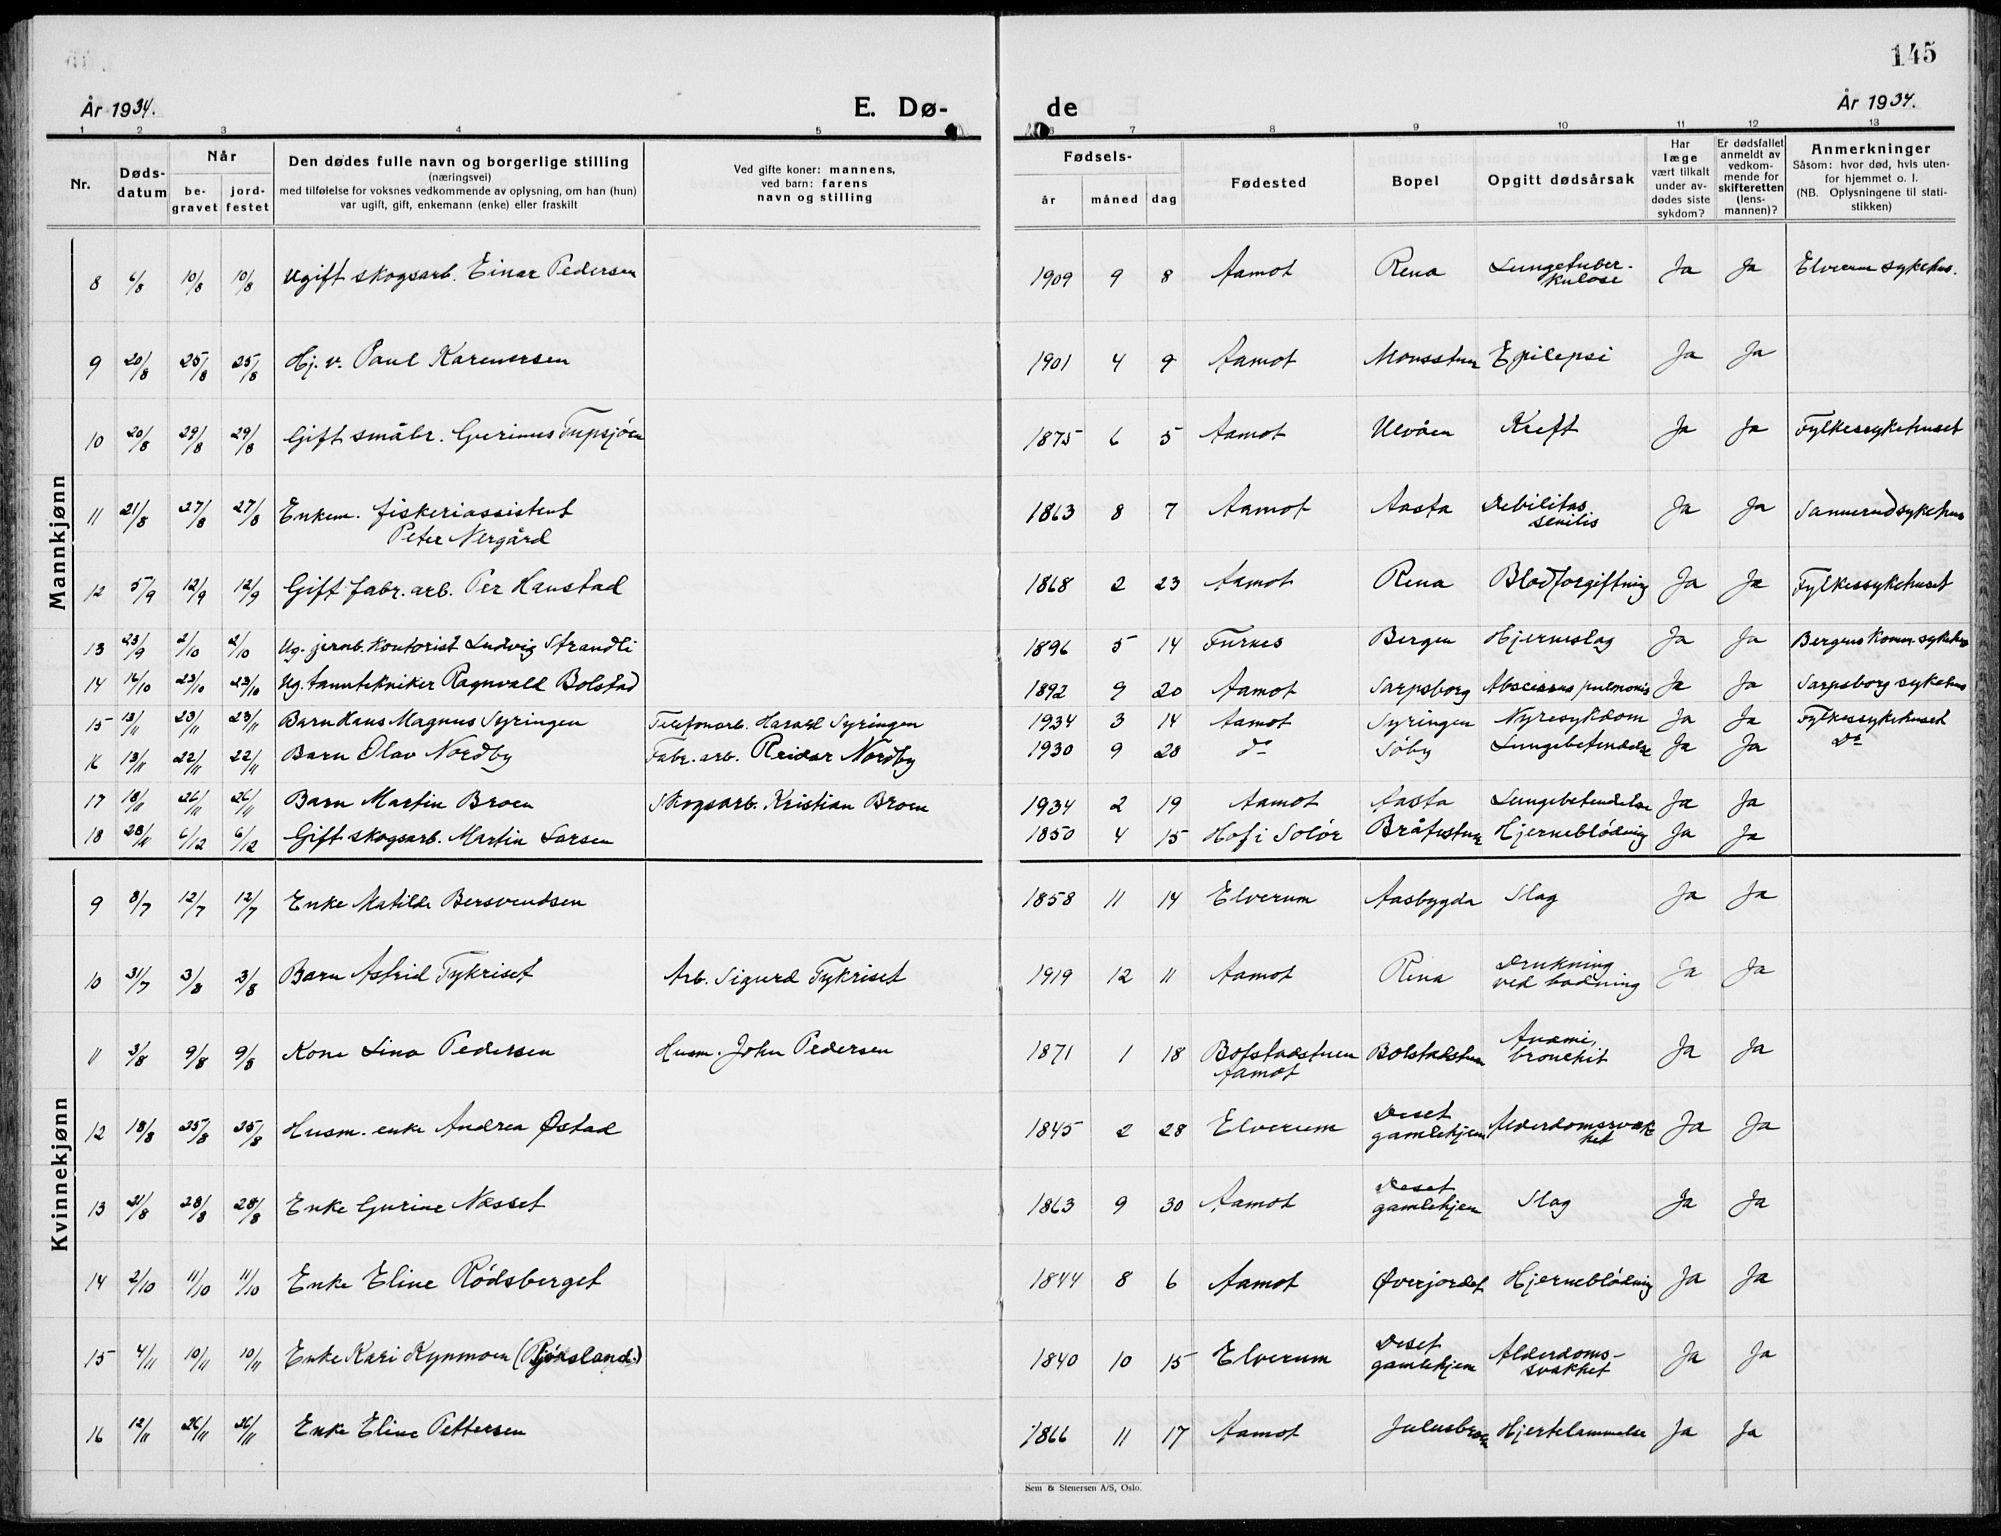 145
År 1934.
E. Dø-
de
År 1934.
1 2 3 4 5
6 7 8 9 10 11 12 13
Nr.
Døds-
datum
Når
be-
gravet
jord-
festet
Den dødes fulle navn og borgerlige stilling
(næringsvei)
med tilføielse for voksnes vedkommende av oplysning, om han (hun)
var ugift, gift, enkemann (enke) eller fraskilt
Ved gifte koner: mannens,
ved barn: farens
navn og stilling
Fødsels-
år måned dag
Fødested
Bopel
Opgitt dødsårsak
Har
læge
vært tilkalt
under av-
dødes siste
sykdom?
Er dødsfallet
anmeldt av
vedkom-
mende for
skifteretten
(lens-
mannen)?
Anmerkninger
Såsom: hvor død, hvis uten-
for hjemmet o. l.
(NB. Oplysningene til stati-
stikken)
Mannkjønn
8 6/8 10/8 10/8 Ugift skogsarb. Einar Pedersen 1909 9 8 Aamot Rena Lungetuber-
kulose Ja Ja Elverum sykehus.
9 20/8 25/8 25/8 Hj. v. Paul Karenersen 1901 4 9 Aamot Monsstuen Epilepsi Ja Ja
10 20/8 29/8 29/8 Gift småbr. Guerinus Tupsjøen 1875 6 5 Aamot Ulvåen Kreft Ja Ja Fylkessykehuset
11 21/8 27/8 27/8 Enkem. fiskeriassistent
Peter Nergård 1863 8 7 Aamot Aasta Debilitas
senilis Ja Ja Sannerud sykehus
12 5/9 12/9 12/9 Gift fabr. arb. Per Haustad 1868 2 23 Aamot Rena Blodforgiftning Ja Ja Fylkessykehuset
13 23/9 2/10 2/10 Ug. jernb. kontorist Ludvig Strandli 1896 5 14 Furnes Bergen Hjerneslag Ja Ja Bergens komm. sykehus
14 16/10 23/10 23/10 Ug. tanntekniker Ragnvald Bolstad 1892 9 20 Aamot Sarpsborg Abscessus pulmonis Ja Ja Sarpsborg sykehus
15 13/11 23/11 23/11 Barn Hans Magnus Syringen Telefonarb. Harald Syringen 1934 3 14 Aamot Syringen Nyresykdom Ja Ja Fylkessykehuset
16 13/11 22/11 22/11 Barn Olav Nordby Fabr. arb. Reidar Nordby 1930 9 28 do Søby Lungebetendelse Ja Ja Do
17 18/11 26/11 26/11 Barn Martin Broen Skogsarb. Kristian Broen 1934 2 19 Aamot Aasta Lungebetendelse Ja Ja
18 28/11 6/12 6/12 Gift skogsarb. Martin Larsen 1850 4 15 Hof i Solør Bråtestuen Hjerneblødning Ja Ja
Kvinnekjønn
9 8/7 12/7 12/7 Enke Matilde Bersvendsen 1858 11 14 Elverum Aasbygda Slag Ja Ja
10 31/7 3/8 3/8 Barn Astrid Tykriset Arb. Sigurd Tykriset 1919 12 11 Aamot Rena Drukning
ved badning Ja Ja
11 3/8 9/8 9/8 Kone Lina Pedersen Husm. John Pedersen 1871 1 18 Bolstadstuen
Aamot Bolstadstuen Anæmi,
bronchit Ja Ja
12 18/8 25/8 25/8 Husm. enke Andrea Østad 1845 2 28 Elverum Deset
gamlehjem Alderdomssvak
het Ja Ja
13 21/8 28/8 28/8 Enke Gurine Næsset 1863 9 30 Aamot Deset
gamlehjem Slag Ja Ja
14 2/10 11/10 11/10 Enke Eline Rødsberget 1844 8 6 Aamot Øverjordet Hjerneblødning Ja Ja
15 4/11 10/11 10/11 Enke Kari Kynmoen 1840 10 15 Elverum Deset
gamlehjem Alderdoms-
svakhet Ja Ja
16 12/11 26/11 26/11 Enke Eline Pettersen 1866 11 17 Aamot Julusbroen Hjertelammelse Ja Ja
Sem & Stenersen A/S, Oslo.